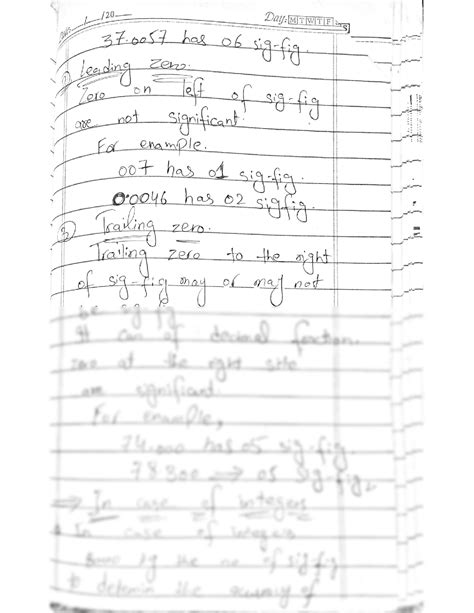 / /20
Day: M T W T F S
37.0057 has 06 sig-fig.
Leading Zero:
Zero on left of sig-fig
are not significant.
For enample.
007 has 01 sig-fig.
0.0046 has 02 sigfig.
3) Trailing zero.
Trailing zero to the right
of sig-fig may or may not
be sig fig
It can of decimal fraction.
zero at the right side
are significant.
For enample,
74.000 has 05 sig-fig.
78.300 ⇒ 05 sig-fig
⇒ In case of integers
In case of integers
the no of sig fig
the accuracy of